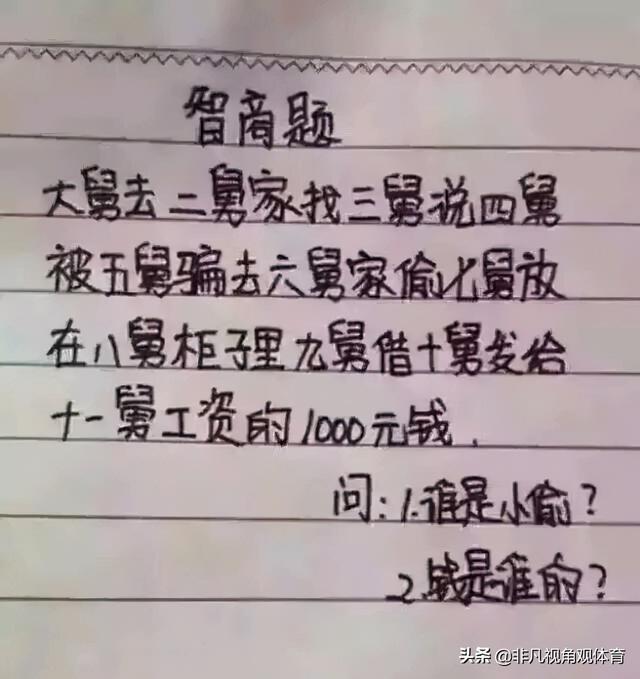 智商题
大舅去二舅家找三舅说四舅
被五舅骗去六舅家偷七舅放
在八舅柜子里九舅借十舅发给
十一舅工资的1000元钱.
问:1.谁是小偷?
2.钱是谁的?
头条@非凡视角观体育